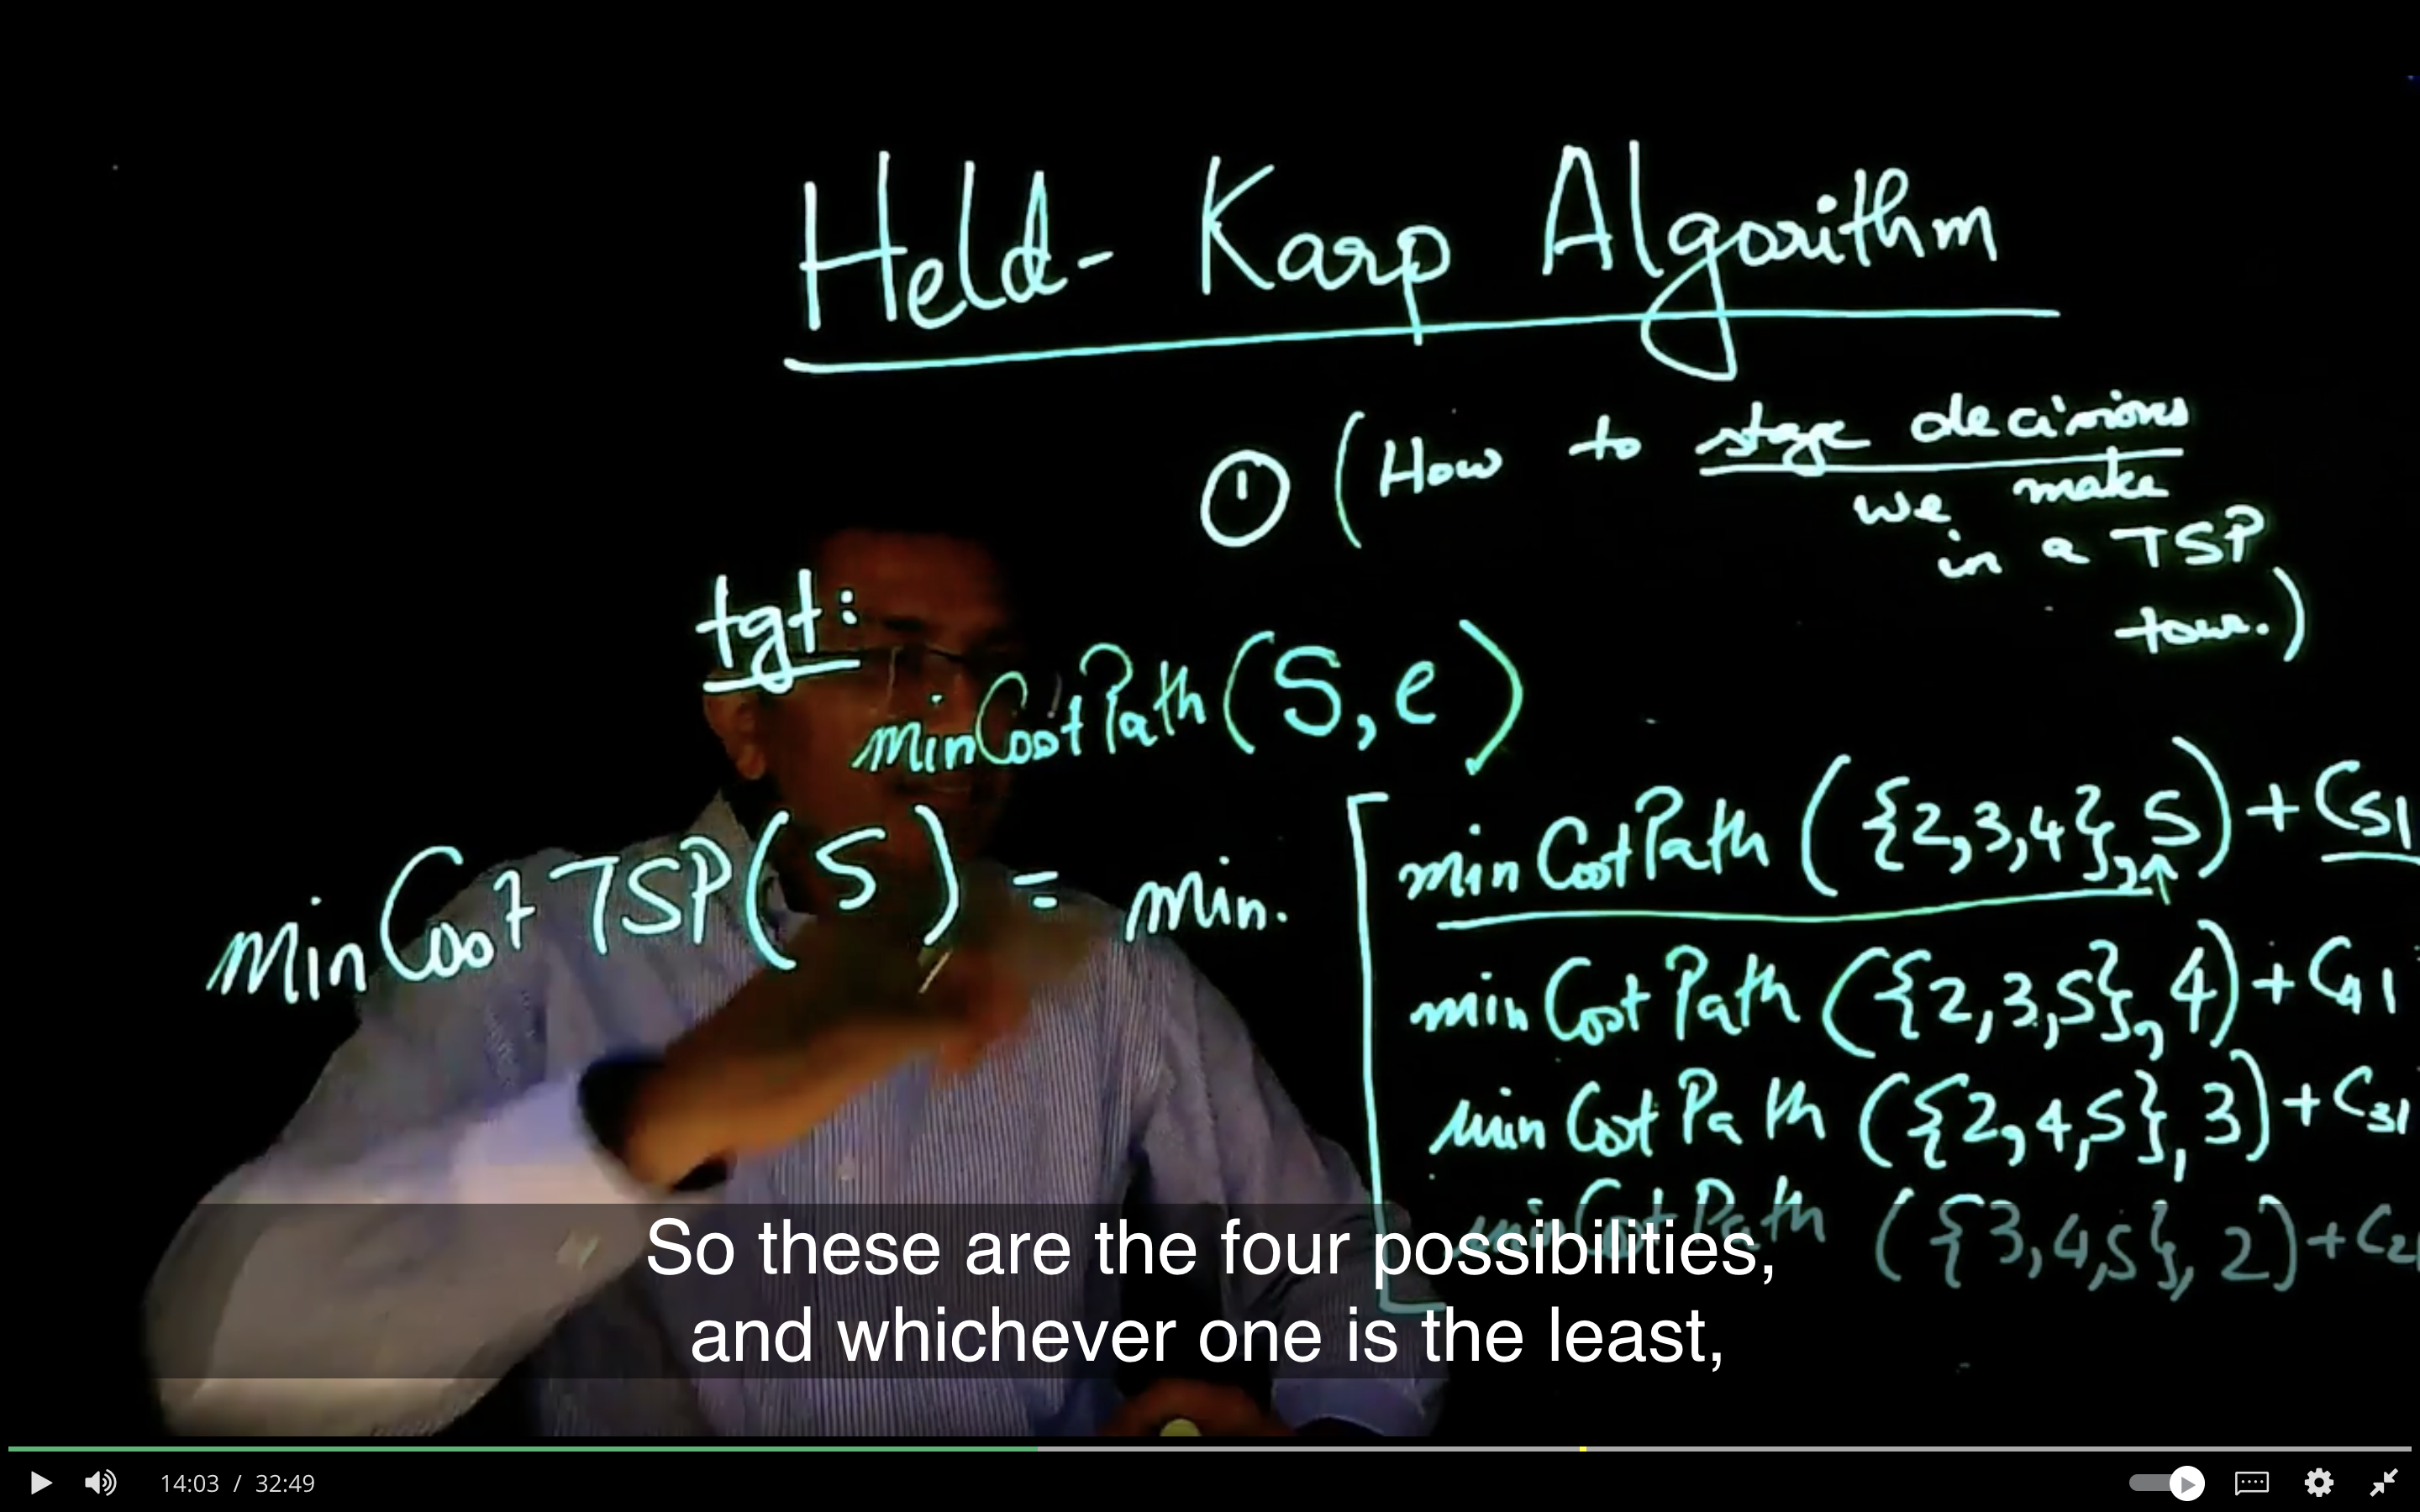 Held-Karp Algorithm
① (How to stage decisions
we make
in a TSP
tour.)
tgt:
minCostPath(S, e)
minCostTSP(5) = min.
minCostPath ({2,3,4}, 5) + C51
minCostPath ({2,3,5}, 4) + C41
minCostPath ({2,4,5}, 3) + C31
minCostPath ({3,4,5}, 2) + C21
So these are the four possibilities,
and whichever one is the least,
14:03 / 32:49